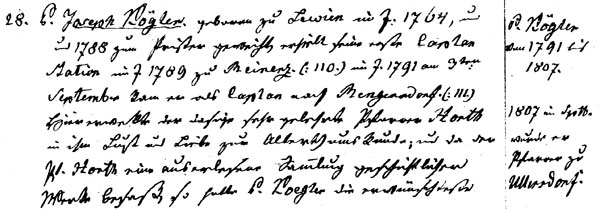 28. P. Joseph Kögler. geboren zu Lewin im J. 1764, u
u 1788 zum Priester geweiht erhielt seine erste Caplan
Station im J 1789 zu Reinerz (: 110.) im J. 1791 am 3ten
September kam er als Caplan nach Rengersdorf. (: 111.)
Hier weckte der dasige sehr gelehrte Pfarrer Hoeth
in ihm Lust und Liebe zur Alterthumskunde, u da der
Pf. Hoeth eine auserlesene Samlung geschichtlicher
Werke besaß, so hatte P. Koegler die erwünschteste
P. Kögler
von 1791 bis
1807.
1807 im
wurde er
Pfarrer zu
Ullersdorf.